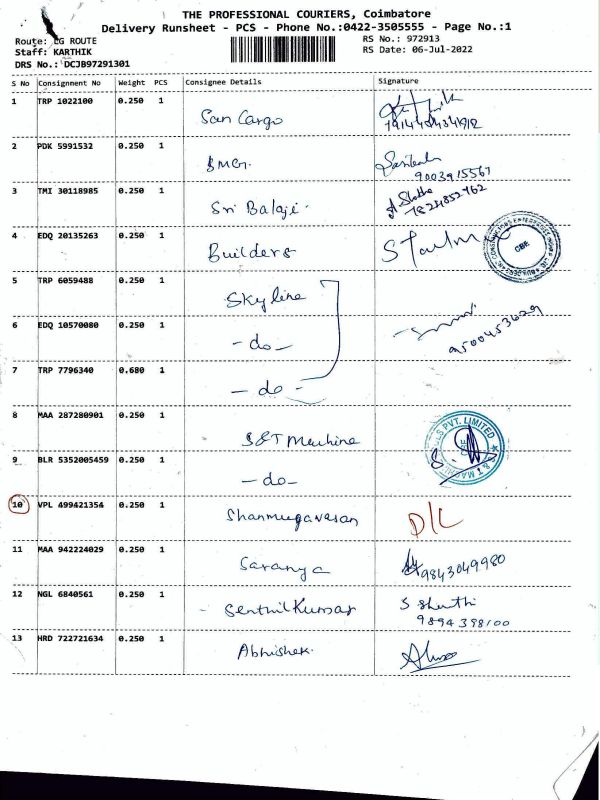 THE PROFESSIONAL COURIERS, Coimbatore
Delivery Runsheet - PCS - Phone No.:0422-3505555 - Page No.:1
Route: LG ROUTE
RS No.: 972913
Staff: KARTHIK
RS Date: 06-Jul-2022
DRS No.: DCJB97291301
S No Consignment No Weight PCS Consignee Details Signature
1 TRP 1022100 0.250 1 San Cargo
2 PDK 5991532 0.250 1 BMG.
9003915567
3 TMI 30118985 0.250 1 Sri Balaji
4 EDQ 20135263 0.250 1 Builders
CBE
5 TRP 6059488 0.250 1 Skyline
6 EDQ 10570080 0.250 1 -do-
9500453629
7 TRP 7796340 0.680 1 -do-
8 MAA 287280901 0.250 1 S&T Machine
9 BLR 5352005459 0.250 1 -do-
10 VPL 499421354 0.250 1 Shanmugavasan D/L
11 MAA 942224029 0.250 1 Saranya 9843049980
12 NGL 6840561 0.250 1 Senthil Kumar S Shanthi
9894398100
13 HRD 722721634 0.250 1 Abhishek.